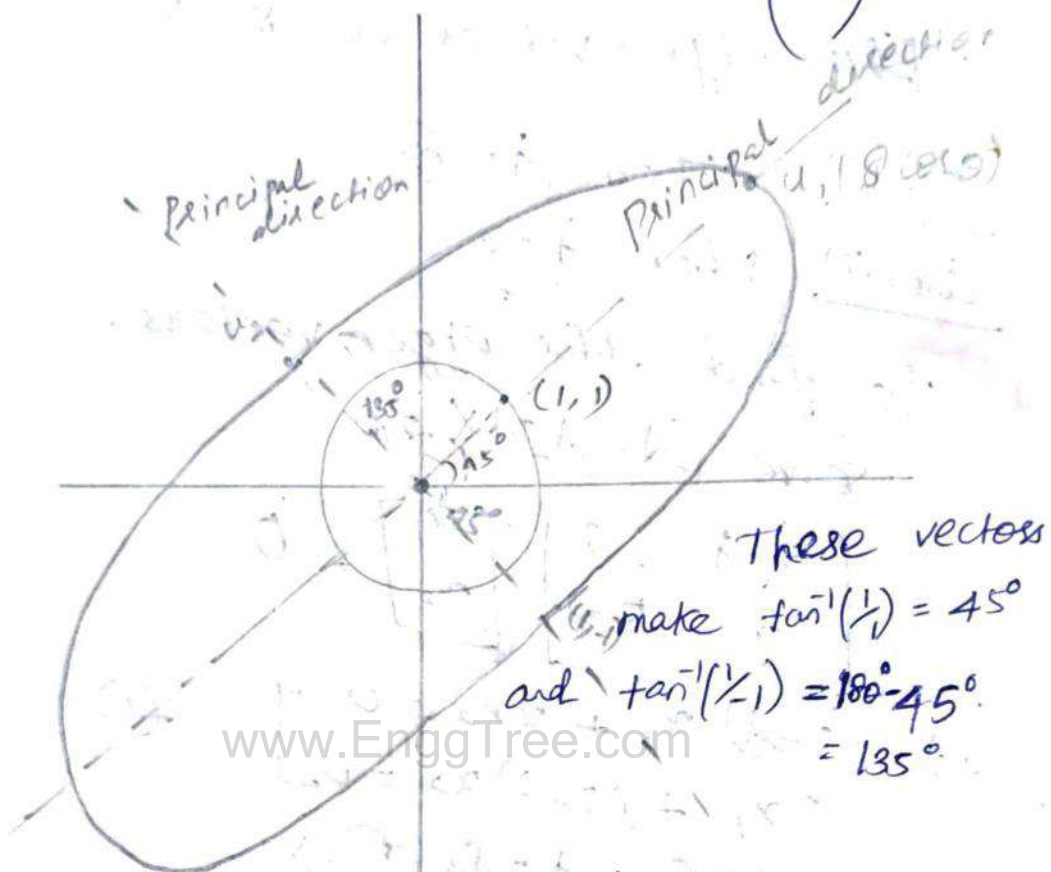 principal
direction
principal direction
(1, 1)
135°
45°
These vectors
make tan⁻¹(1/1) = 45°
and tan⁻¹(1/-1) = 180°-45°
= 135°
www.EnggTree.com